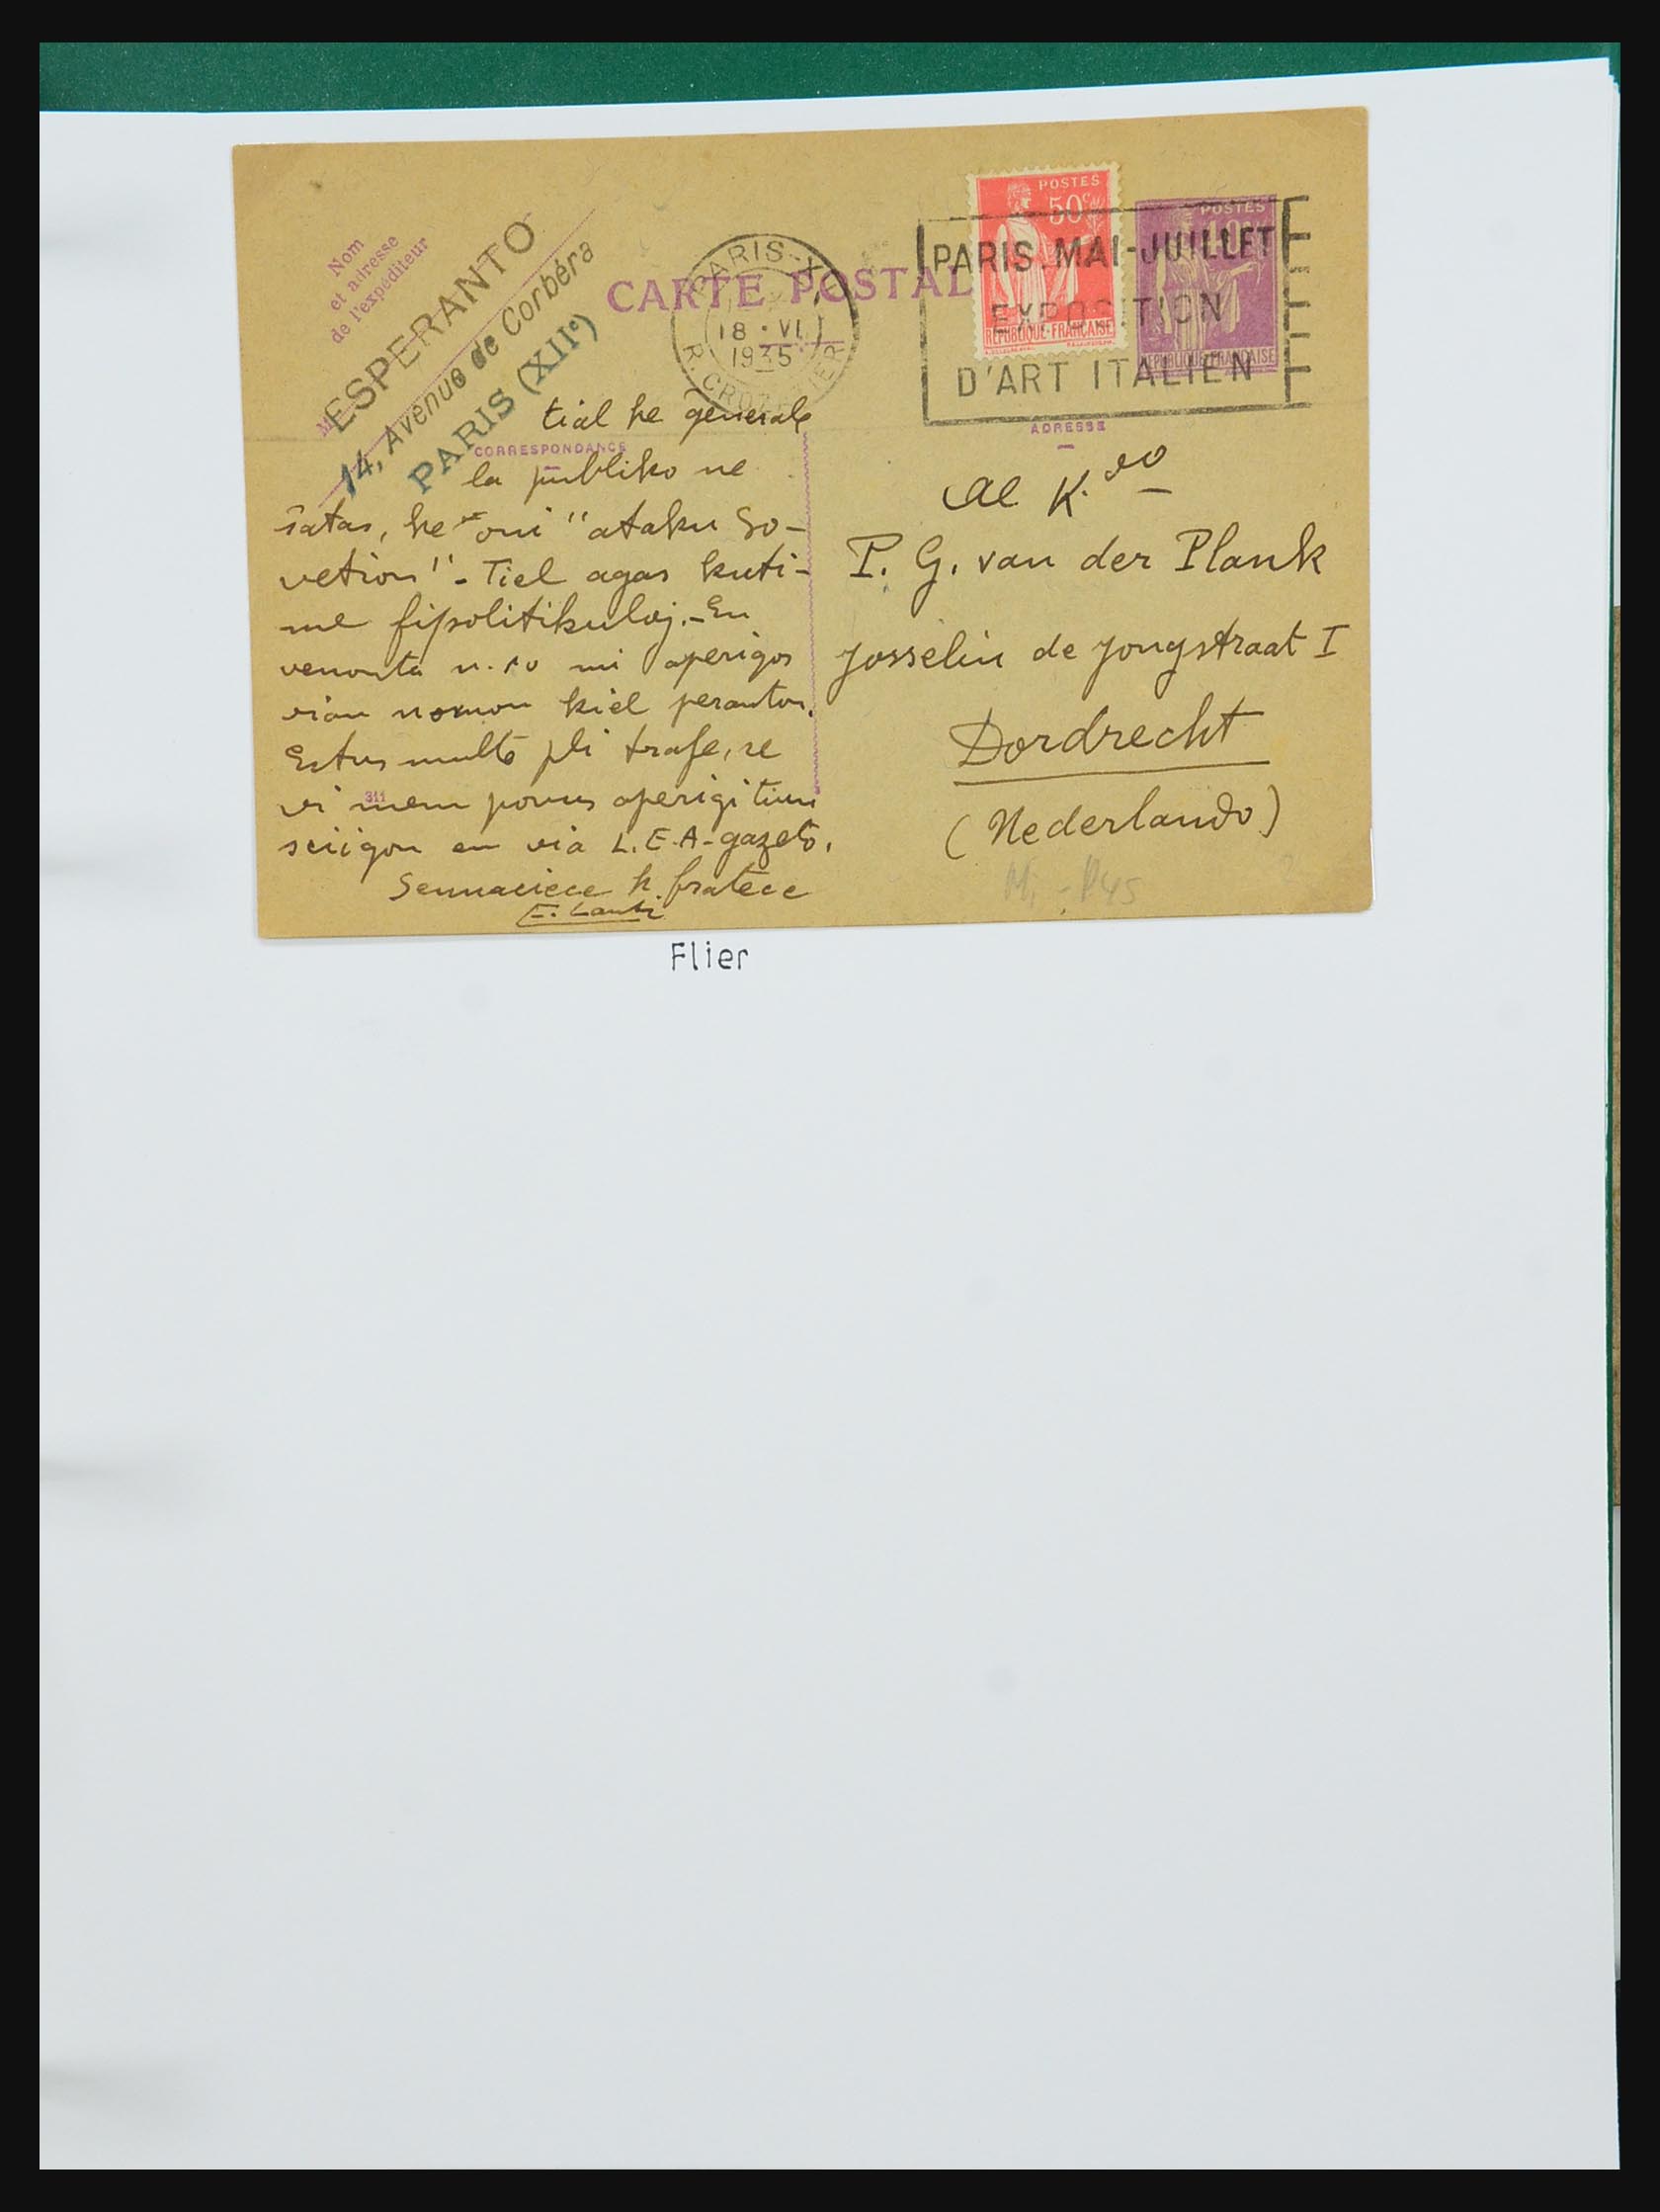 Nom
et adresse
de l'expéditeur
M
ESPERANTO
14, Avenue de Corbéra
PARIS (XIIe)
CARTE POSTAL
PARIS-X
18 · VI
1935
R. CROZ IER
POSTES
50c
REPUBLIQUE-FRANÇAISE
POSTES
REPUBLIQUE FRANÇAISE
PARIS.MAI-JUILLET
EXPOSITION
D'ART ITALIEN
CORRESPONDANCE
tial ke ĝenerale
la publiko ne
ŝatas, ke oni "ataku So-
vetion". - Tiel agas kuti-
me fipolitikuloj. - En
venonta n.ro mi aperigos
vian nomon kiel peranton.
Estus multe pli trafe, se
vi mem povus aperigi tiun
sciigon en via L.E.A-gazeto.
Sennaciece k. fratece
E. Lanti
311
ADRESSE
Al K.do
P. G. van der Plank
Josselin de Jongstraat I
Dordrecht
(Nederlando)
Flier